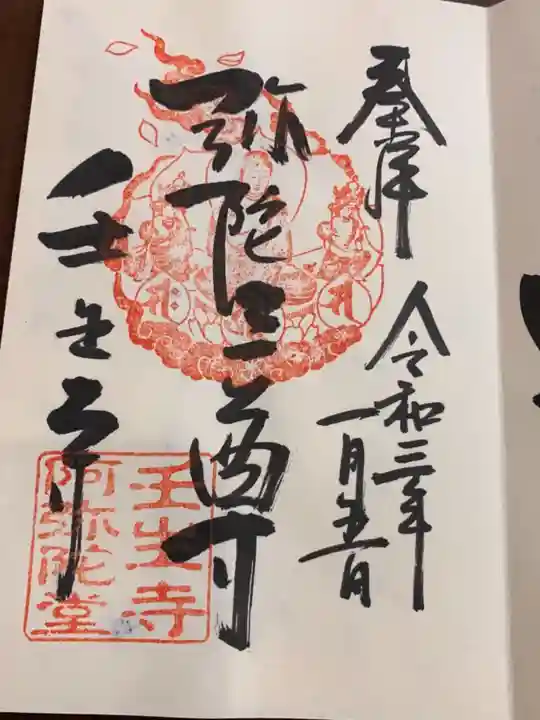 奉拝
令和三年
一月五日
弥陀三尊
壬生寺
壬生寺
阿弥陀堂